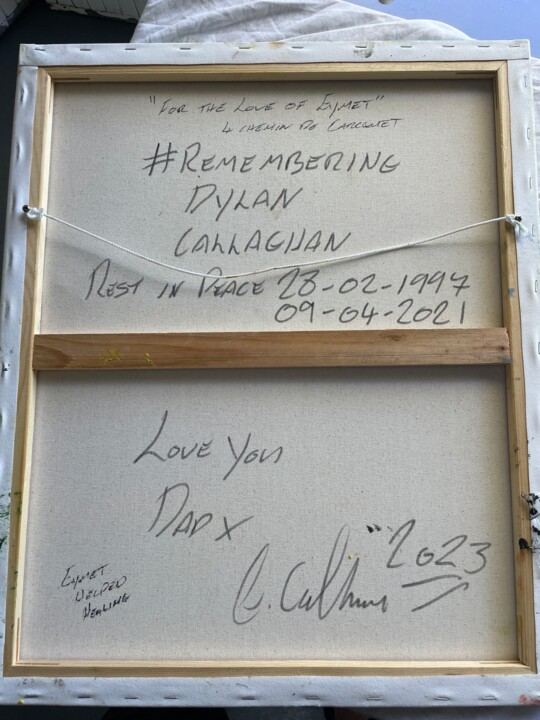 "FOR THE LOVE OF EYMET"
4 CHEMIN DE
#REMEMBERING
DYLAN
CALLAGHAN
REST IN PEACE 28-02-1997
09-04-2021
LOVE YOU
DAD X
"2023
EYMET
HELPED
HEALING